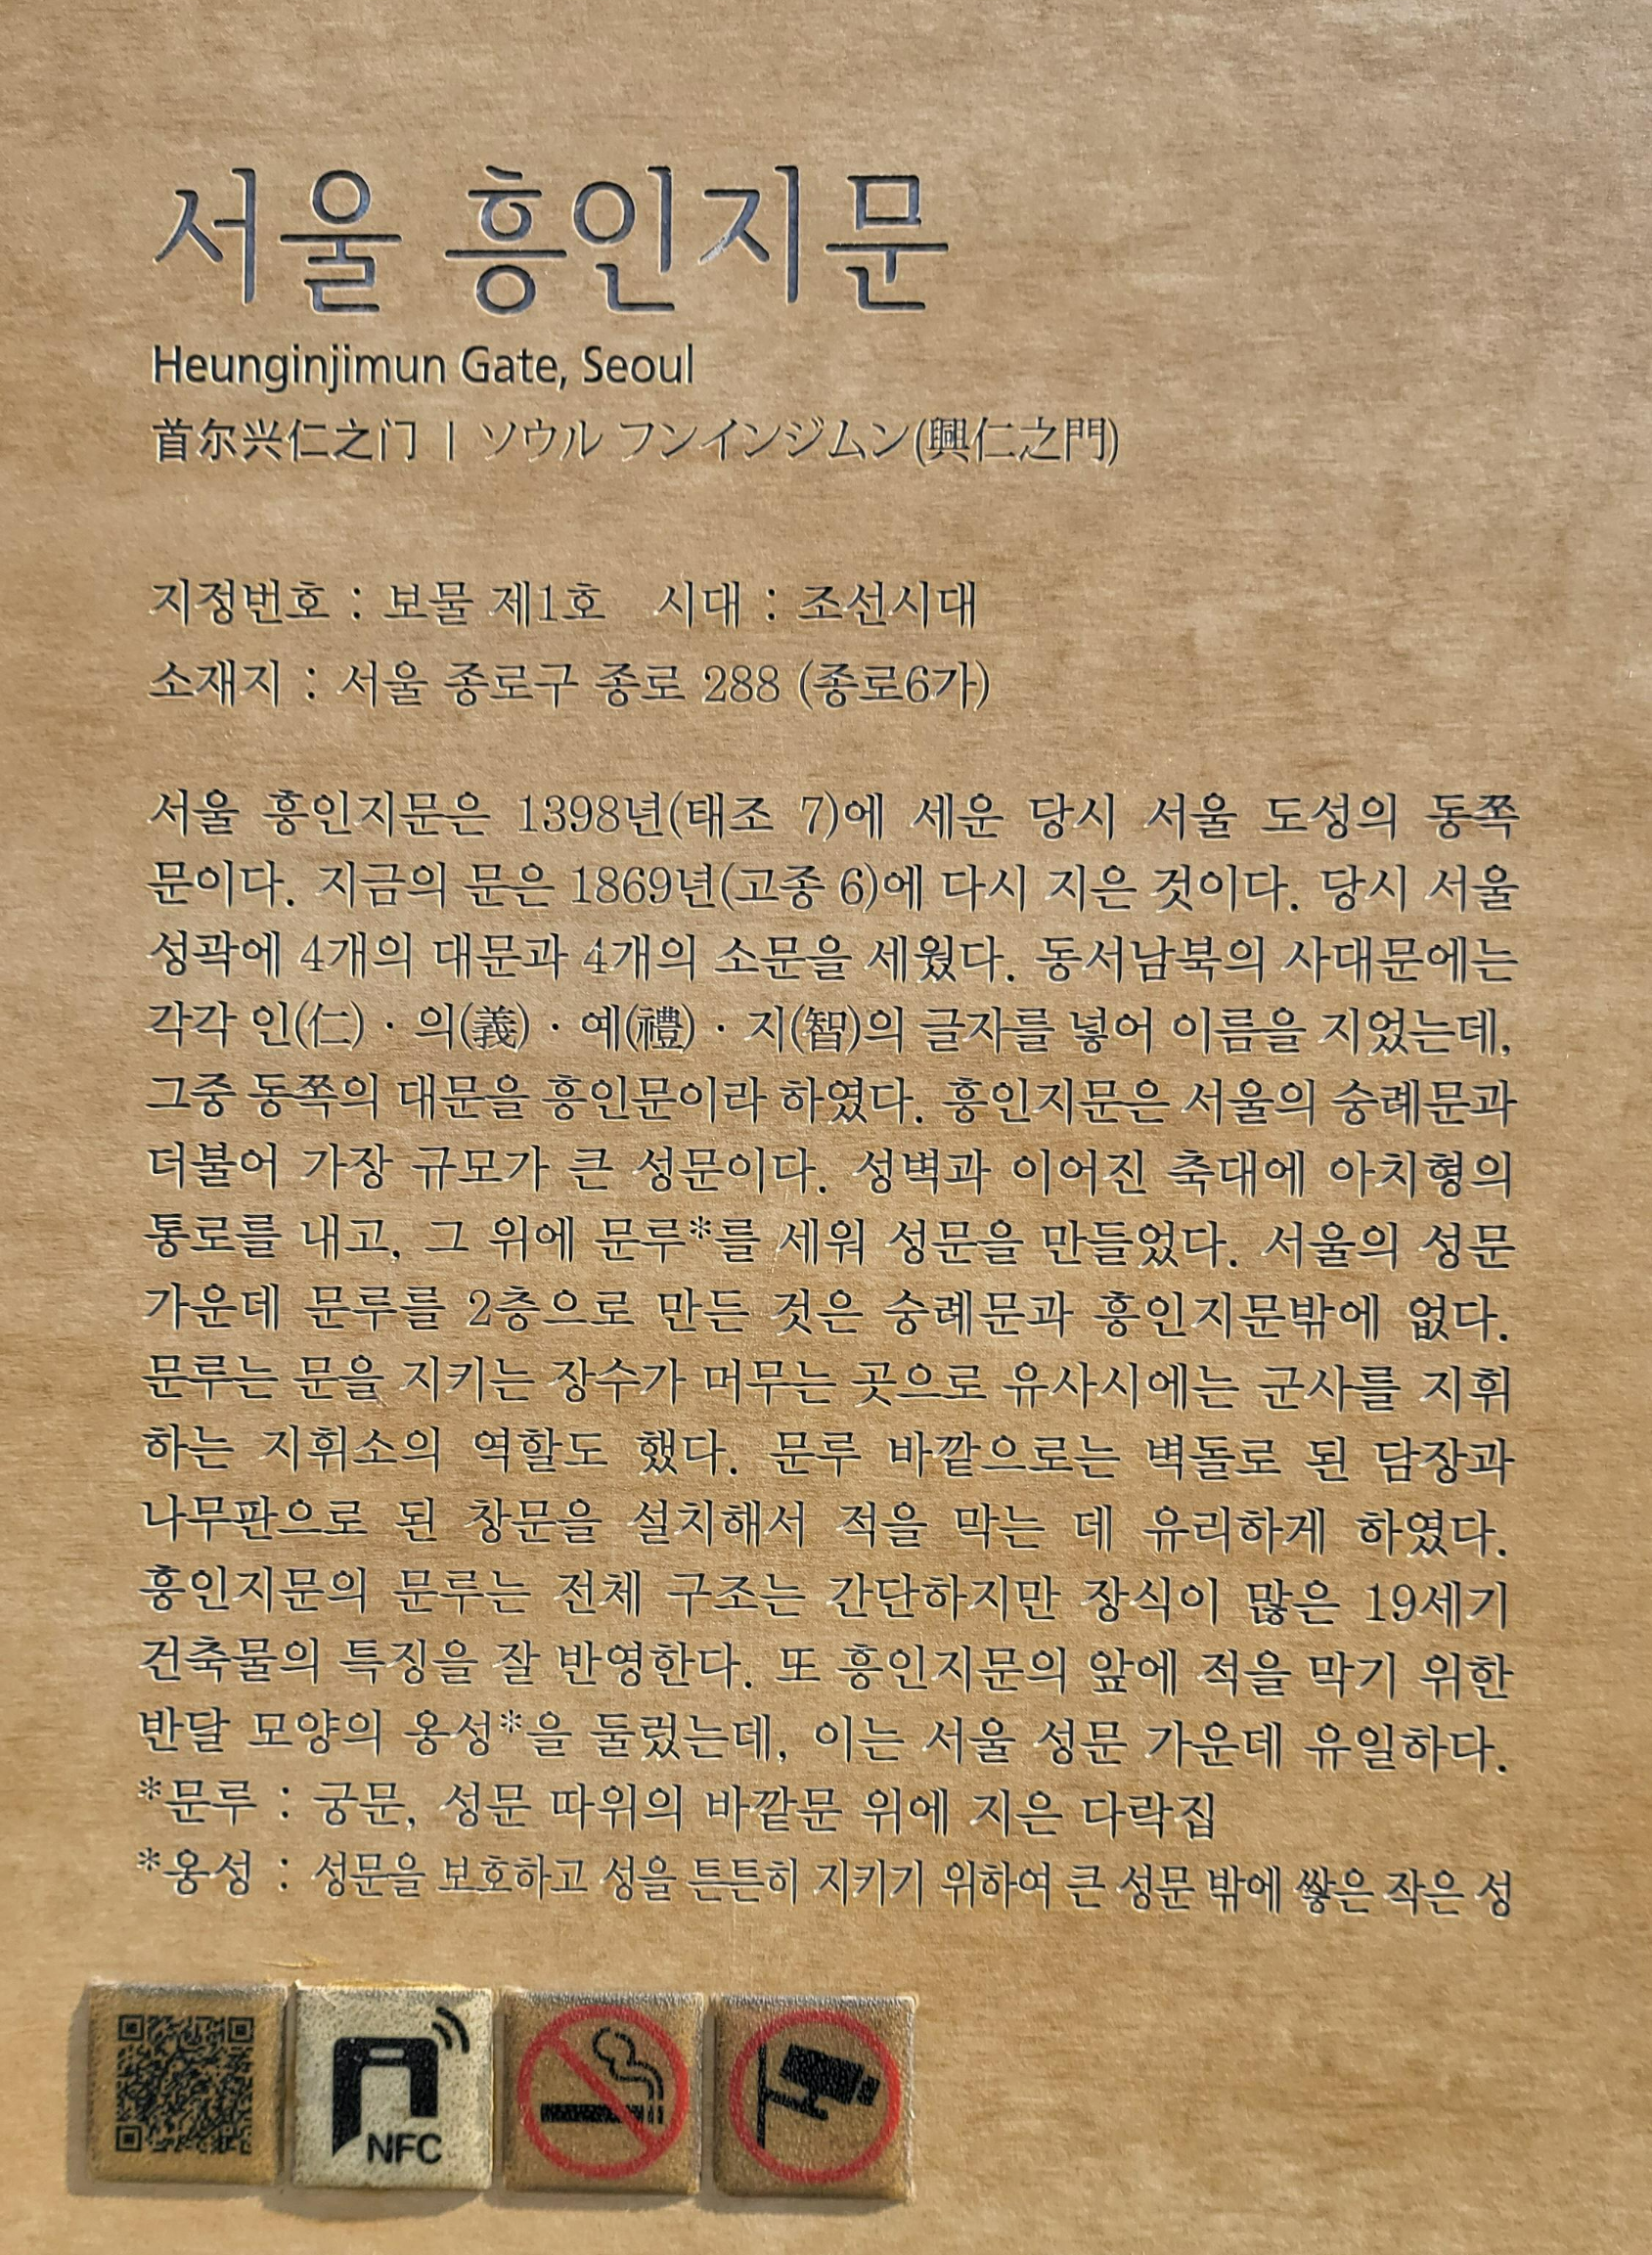 서울 흥인지문
Heunginjimun Gate, Seoul
首尔兴仁之门 | ソウル フンインジムン(興仁之門)
지정번호 : 보물 제1호 시대 : 조선시대
소재지 : 서울 종로구 종로 288 (종로6가)
서울 흥인지문은 1398년(태조 7)에 세운 당시 서울 도성의 동쪽
문이다. 지금의 문은 1869년(고종 6)에 다시 지은 것이다. 당시 서울
성곽에 4개의 대문과 4개의 소문을 세웠다. 동서남북의 사대문에는
각각 인(仁) · 의(義) · 예(禮) · 지(智)의 글자를 넣어 이름을 지었는데,
그중 동쪽의 대문을 흥인문이라 하였다. 흥인지문은 서울의 숭례문과
더불어 가장 규모가 큰 성문이다. 성벽과 이어진 축대에 아치형의
통로를 내고, 그 위에 문루*를 세워 성문을 만들었다. 서울의 성문
가운데 문루를 2층으로 만든 것은 숭례문과 흥인지문밖에 없다.
문루는 문을 지키는 장수가 머무는 곳으로 유사시에는 군사를 지휘
하는 지휘소의 역할도 했다. 문루 바깥으로는 벽돌로 된 담장과
나무판으로 된 창문을 설치해서 적을 막는 데 유리하게 하였다.
흥인지문의 문루는 전체 구조는 간단하지만 장식이 많은 19세기
건축물의 특징을 잘 반영한다. 또 흥인지문의 앞에 적을 막기 위한
반달 모양의 옹성*을 둘렀는데, 이는 서울 성문 가운데 유일하다.
*문루 : 궁문, 성문 따위의 바깥문 위에 지은 다락집
*옹성 : 성문을 보호하고 성을 튼튼히 지키기 위하여 큰 성문 밖에 쌓은 작은 성
NFC